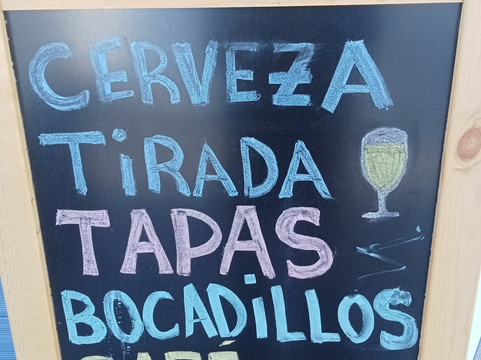 CERVEZA
TiRADA
TAPAS
BOCADiLLOS